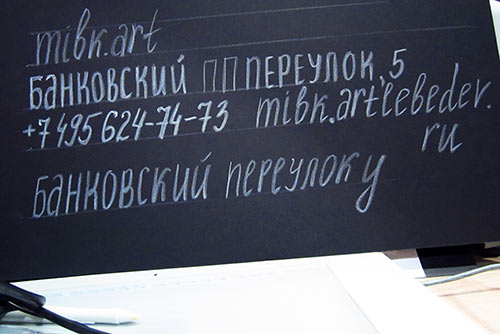 mibk.art
БАНКОВСКИЙ ПП ПЕРЕУЛОК, 5
+7 495 624-74-73 mibk.artlebedev.
ru
БАНКОВСКИЙ ПЕРЕУЛОКУ